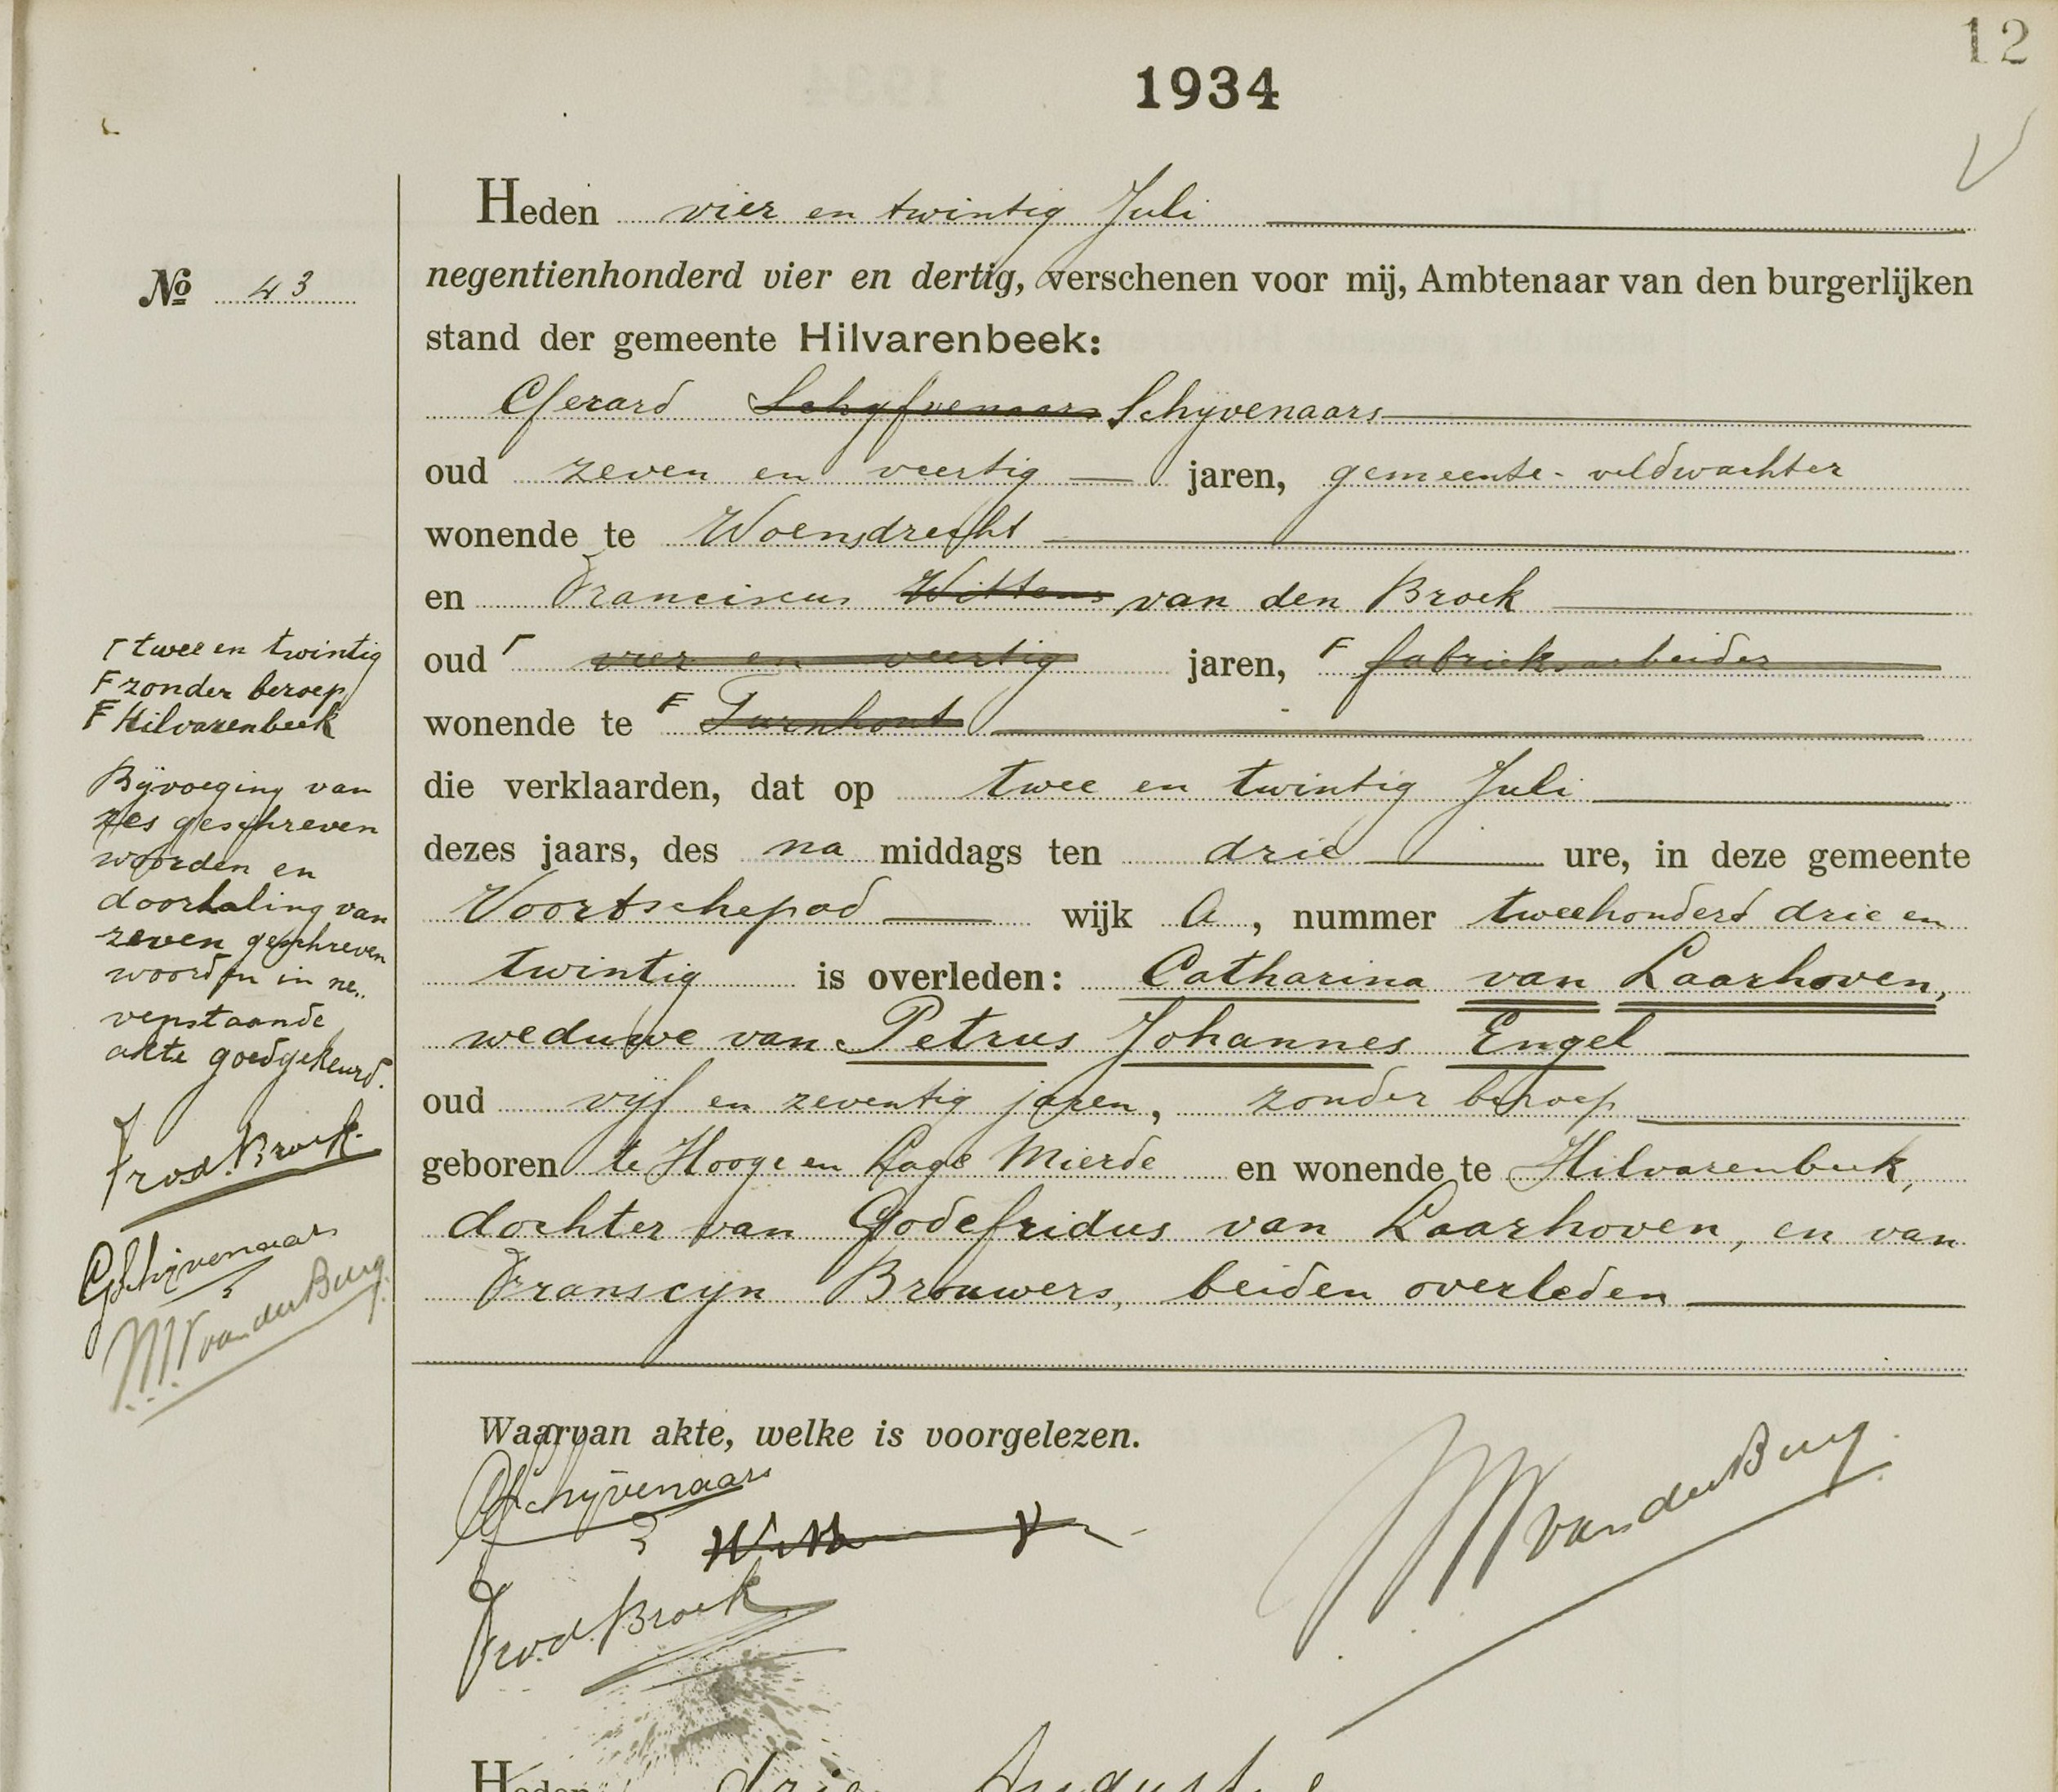 12
1934
Heden vier en twintig Juli
No 43
negentienhonderd vier en dertig, verschenen voor mij, Ambtenaar van den burgerlijken
stand der gemeente Hilvarenbeek:
Gerard Schyfvenaars Schyvenaars
oud zeven en veertig jaren, gemeente-veldwachter
wonende te Woensdrecht
en Franciscus Wittens van den Broek
oud vier en veertig jaren, F fabrieksarbeider
wonende te F Turnhout
die verklaarden, dat op twee en twintig Juli
dezes jaars, des na middags ten drie ure, in deze gemeente
Voortschepad wijk A, nummer tweehonderd drie en
twintig is overleden: Catharina van Laarhoven,
weduwe van Petrus Johannes Engel
oud vijf en zeventig jaren, zonder beroep
geboren te Hooge en Lage Mierde en wonende te Hilvarenbeek,
dochter van Godefridus van Laarhoven, en van
Franscyn Brouwers, beiden overleden
Γ twee en twintig
F zonder beroep
F Hilvarenbeek
Bijvoeging van
zes geschreven
woorden en
doorhaling van
zeven geschreven
woorden in ne-
venstaande
akte goedgekeurd.
Fr v d. Broek
GSchijvenaars
van der Burg
Waarvan akte, welke is voorgelezen.
GSchijvenaars
Fr v. d. Broek
van der Burg
Heden drie August